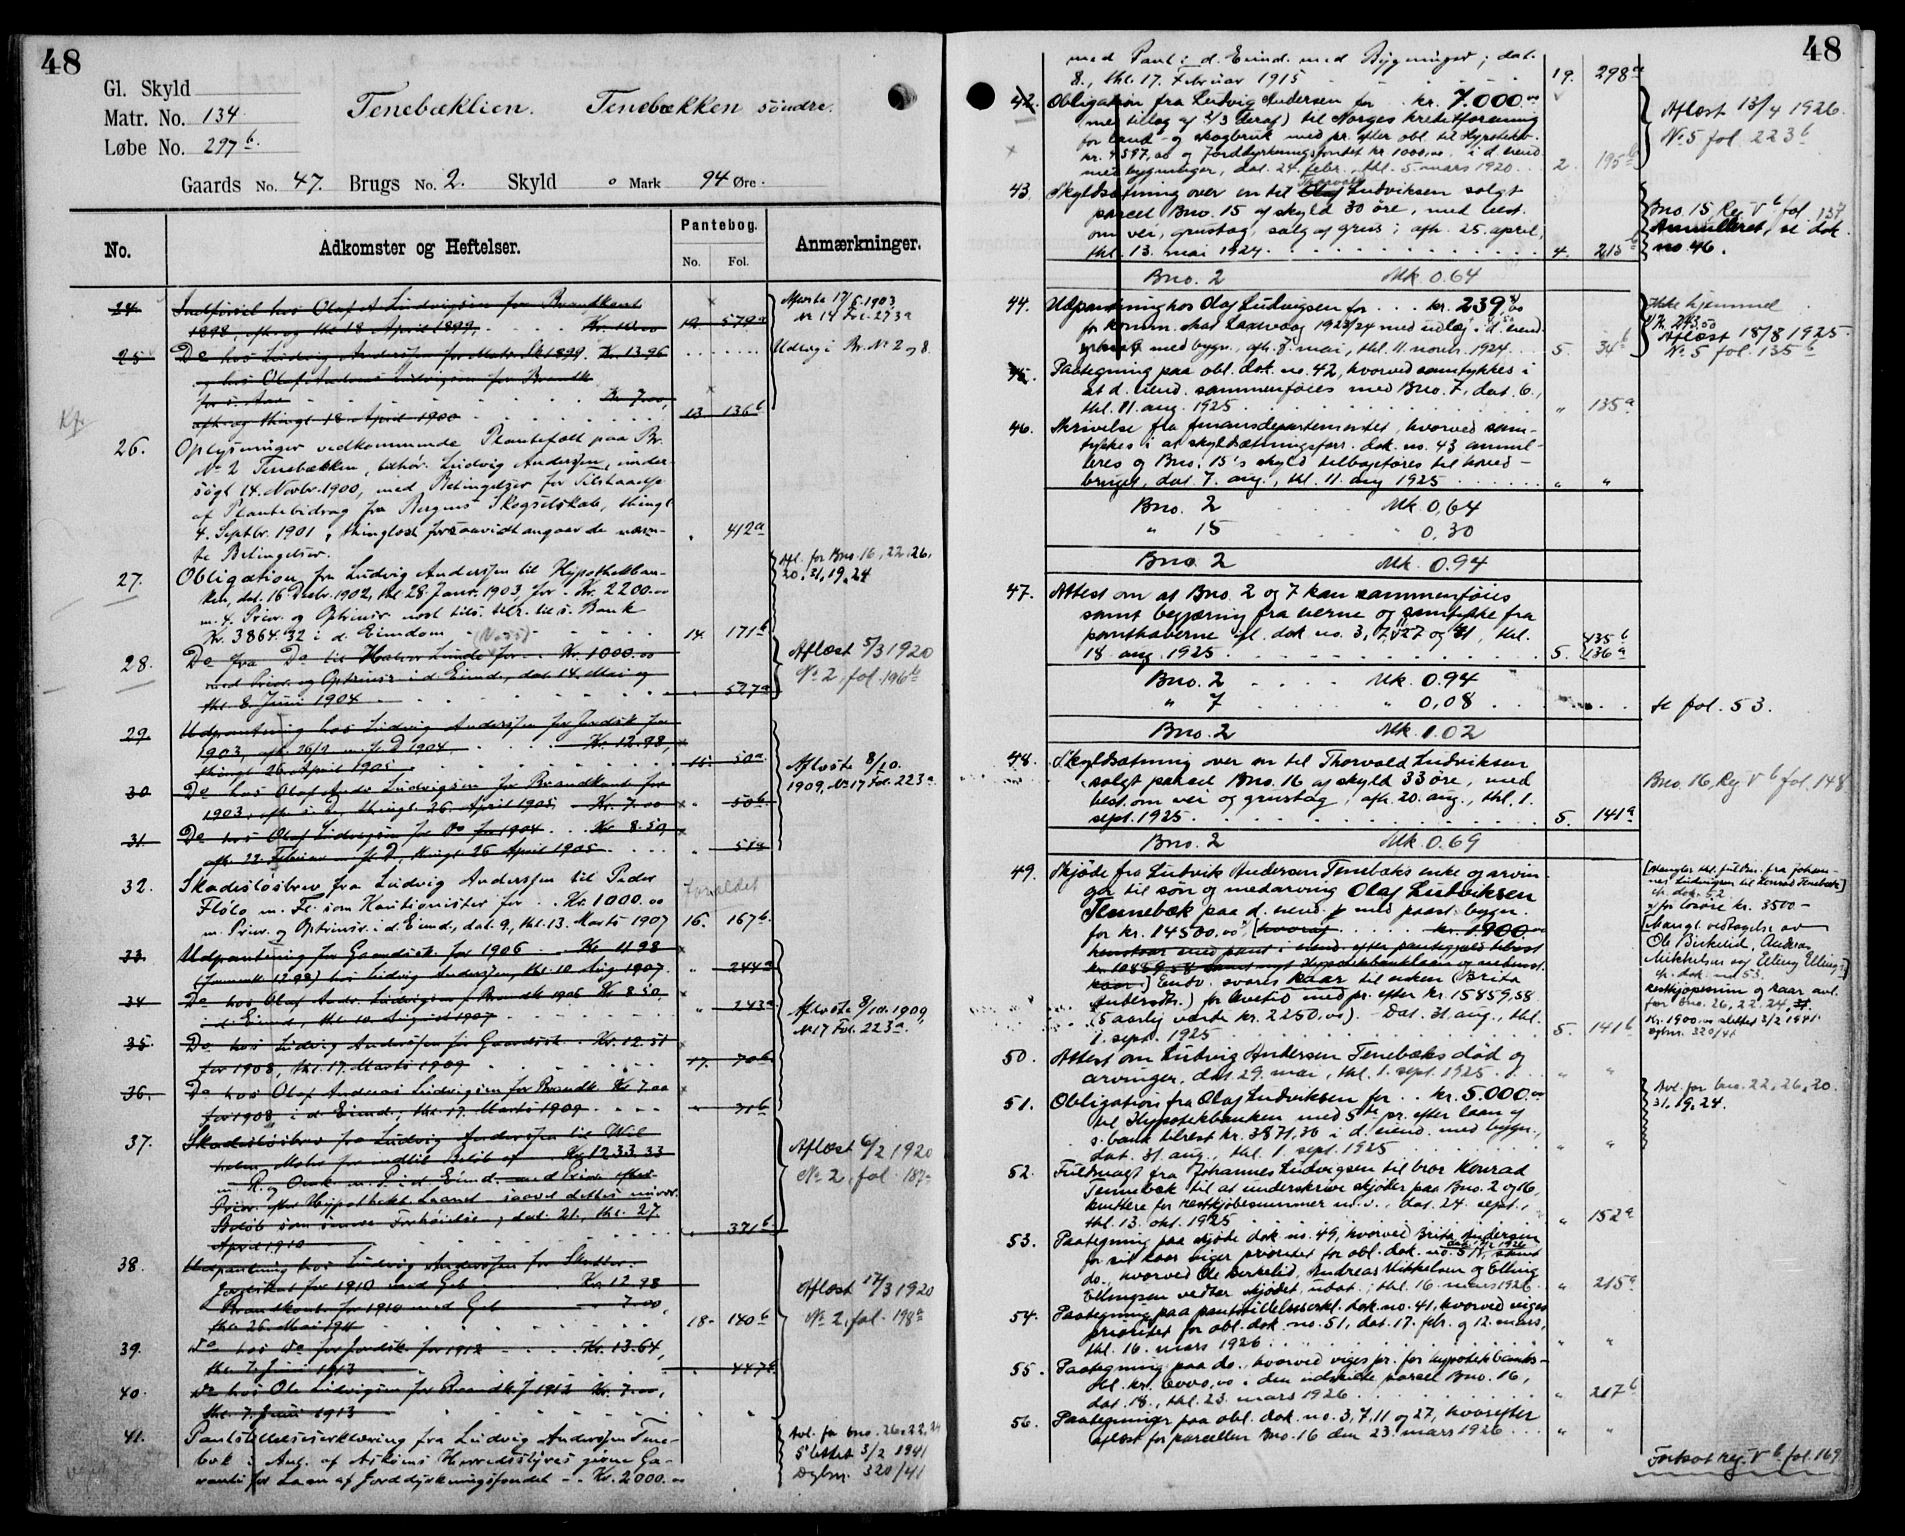 48
Gl. Skyld
Matr. No. 134
Løbe No. 297 b.
Tenebæklien. Tenebækken söndre.
Gaards No. 47. Brugs No. 2. Skyld 0 Mark 94 Øre.
No. Adkomster og Heftelser. Pantebog. No. Fol. Anmærkninger.
24. Indförsel hos Olaf A Ludvigsen for Brandkont
1898, afh. og thl 18 April 1899, Kr. 10.00 12. 579a
Afløste 17/6 1903
No 14 Fol. 273a
25. Do hos Ludvig Andersen for Matr. Sk 1899. Kr. 13.96
Udlæg i Br. No 2 og 8.
og hos Olaf Andreas Ludvigsen for Brandk.
for s. Aar Kr. 7.00,
afh. og thingl. 18 April 1900 13 136b
26. Oplysninger vedkommende Plantefelt paa Br.
No 2 Tenebækken, tilhör. Ludvig Andersen, under-
sögt 14. Novbr. 1900, med Betingelser for Tilstaaelse
af Plantebidrag fra Bergens Skogselskab, thingl.
4. Septbr. 1901, thinglæst forsaavidt angaar de nævn- 412a
te Betingelser.
27. Obligation fra Ludvig Andersen til Hypothekban-
ken, dat. 16 Decbr. 1902, thl 28 Janr. 1903, for Kr. 2200.00
m. 4. Prior. og Optrinsr. næst tils. till. til s. Bank
Kr. 3864.32 i d. Eiendom 14. 171b
Afl. for Bno. 16, 22, 26,
20, 31, 19, 24
28. Do fra Do til Halvor Lunde for Kr. 1000.00
med Prior. og Optrinsr. i d. Eiend., dat. 14. Mai og
thl. 8 Juni 1904 527a
Aflæst 5/3 1920
No 2, fol. 196b
29. Udpantning hos Ludvig Andersen for Jordsk for
1903, afh. 26/2 m. f. D. 1904, Kr. 12.98,
thingl. 26 April 1905 15. 50a
30. Do hos Olaf Andr. Ludvigsen for Brandkont for
1903, afh. s. D., thingl. 26. April 1905, Kr. 7.00 50b
Afløste 8/10.
1909, No 17 Fol. 223a
31. Do hos Olaf Ludvigsen for Do for 1904 Kr. 8.50,
afh. 22. Februar m. f. D, thingl 26 April 1905. 51a
32. Skadesløsbrev fra Ludvig Andersen til Peder
Flölo m. Fl. som Kautionister for Kr. 1000.00
m. Prior. og Optrinsr. i d. Eiend., dat. 9., thl. 13. Marts 1907 16. 167b.
forældet
33. Udpantning for Gaardsk. for 1906 Kr 11.98
hos Ludvig Andersen, thl. 10 Aug 1907. 244a
34. Do hos Olaf Andr. Ludvigsen f. Brandk 1906 Kr 8.50,
i d. Eiend., thl. 10 August 1907 243a
Afløste 8/10. 1909,
No 17 Fol. 223a.
35. Do hos Ludvig Andersen for Gaardsk. Kr. 12.51
for 1908, thl. 17. Marts 1909 17. 70b
36. Do hos Olaf Andreas Ludvigsen for Brandk. Kr 7.00
for 1908, i d. Eiend., thl. 17. Marts 1909 71b
37. Skadesløsbrev fra Ludvig Andersen til Wil-
helm Mohr for indtil Beløb af Kr 1233.33
m. R. og Omk. m. P. i d. Eiend. med Prior. efter
Prior. efter Hypothekb. Laanet saavel dettes nuvær.
Beløb som senere Forhöielse, dat. 21., thl. 27
April 1910 371b
Aflæst 6/2 1920
No 2, fol. 187a
38. Udpantning hos Ludvig Andersen for Skatter.
Jordskat for 1910 med Geb. Kr. 12.98
Brandkont. for 1910 med Geb 7.00,
thl. 26. Mai 1911 18. 140b
Aflæst 17/3 1920
No 2, fol. 198a
39. Do hos Do for Jordsk. for 1912 Kr. 13.64,
thl. 7. Juni 1913 447b
40. Do hos Ole Ludvigsen for Brandk f 1912 Kr. 7.00,
thl. 7. Juni 1913
41. Pantstillelseserklæring fra Ludvig Andersen Tene-
bæk i Anl. af Askøens Herredsstyres givne Ga-
ranti for Laan af Jorddyrkningsfondet Kr. 2000.00
Avl. for bno. 26, 22, 24
Slettet 3/2 1941
Dagbnr. 320/41
48
med Pant i d. Eiend. med Bygninger; dat.
8., thl. 17. Februar 1915 19. 298a
42. Obligation fra Ludvig Andersen for kr. 7.000.00
(med tillæg af 2/3 deraf) til Norges Kreditforening
for land- og skogbruk med pr. efter obl. til Hypotekb.
kr. 4597,00 og Jorddyrkningsfondet kr. 1000,00 i d. eiend.
med bygninger, dat. 24. febr., thl. 5. mars 1920 2. 195b
Aflæst 13/4 1926.
No 5 fol. 223b
43. Skyldsætning over en til Thorvald Ludviksen solgt
parcel Bno. 15 af skyld 30 øre, med best.
om vei, grustag, salg af grus; afh. 25. april,
thl. 13. mai 1924 4. 215b
Bno. 15, Reg V b fol. 137
Annulleret, se dok.
no 46.
Bno. 2 Mk 0.64
44. Utpantning hos Olaf Ludvigsen for kr. 239,00
for komm. skat Laxevaag 1923/24 med utlæg i d. eiend.
med bygn., afh. 7. mai, thl. 11. novbr. 1924 5. 34b
Ikke hjemmel
kr. 243,50
Aflæst 18/8 1925
No 5 fol. 135b
45. Paategning paa obl. dok. no. 42, hvorved samtykkes i
at d. eiend. sammenføies med Bno. 7, dat. 6.,
thl. 11. aug. 1925 " 135a
46. Skrivelse fra finansdepartementet, hvorved sam-
tykkes i at skyldsætningsforr. dok. no. 43 annul-
leres og Bno. 15's skyld tilbageføres til hoved-
bruget, dat. 7. aug., thl. 11. aug 1925 " "
Bno. 2 Mk 0,64
" 15 " 0,30
Bno. 2 Mk. 0.94
47. Attest om at Bno. 2 og 7 kan sammenføies
samt begjæring fra eierne og samtykke fra
panthaverne ifl. dok no. 3, 7, 27 og 41, thl.
18. aug. 1925 5. 135b 136a
Bno. 2 Mk. 0.94
" 7 " 0,08
se fol. 53.
Bno. 2 Mk. 1.02
48. Skyldsætning over en til Thorvald Ludviksen
solgt parsel Bno. 16 af skyld 33 øre, med
best. om vei og grustag; afh. 20. aug., thl. 1.
sept. 1925 5. 141a
Bno. 16, Reg V b fol. 148
Bno. 2 Mk 0.69
49. Skjøde fra Ludvik Andersen Tenebæks enke og arvin-
ger til søn og medarving Olaf Ludviksen
Tennebæk paa d. eiend. med paast. bygn.
for kr. 14500,00 [hvoraf kr. 1900.00
henstaar med pant i eiend. efter pantegjæld tilrest
kr. 10859.58 samt nyt Hypotekbanklaan og nedenst.
kaar.] Endv. svares kaar til enken (Brita
Andersdtr.) for livstid med pr. efter kr. 15859,58.
(5 aarlig værdi kr. 2250,00). Dat. 31 aug., thl.
1. sept. 1925 5. 141b
[Mangler thl. fuldm. fra Johan-
nes Ludvigsen til Konrad Tenebæk]
cfr. dok. 52
for løsøre kr. 3500 –
[Mangl. vedtagelse av
Ole Birkelid, Andreas
Mikkelsen og Elling Elling-
cfr. dok. no 53.
Restkjøpesum og kaar avl.
for bno. 26, 22, 24,
Kr. 1900.00 slettet 3/2 1941
Dagbnr. 320/41
50. Attest om Ludvig Andersen Tenebæks død og
arvinger, dat. 29. mai, thl. 1. sept. 1925 " "
51. Obligation fra Olaf Ludviksen for kr. 5.000.00
til Hypotekbanken med 5te pr. efter laan af
s. bank tilrest kr. 3871,36 i d. eiend. med bygn.,
dat. 31 aug., thl. 1. sept. 1925 " "
Avl. for bno. 22, 26, 20.
31, 19, 24.
52. Fuldmagt fra Johannes Ludvigsen til bror Konrad
Tennebæk til at underskrive skjøder paa Bno. 2 og 16,
kvittere for restkjøbesummer m.v., dat. 24. sept.,
thl. 13. okt. 1925 " 152a
53. Paategning paa skjøde dok. no. 49, hvorved Brita Andersen
for sit kaar viger prioritet for obl. dok. no. 51, samt
do., hvorved Ole Birkelid, Andreas Mikkelsen og Elling
Ellingsen vedtar skjødet, udat.; thl. 16. mars 1926. " 215a
54. Paategning paa pantstillelseserkl. dok. no. 41, hvorved viges
prioritet for obl. dok. no. 51, dat. 17. febr. og 12. mars,
thl. 16. mars 1926 " "
55. Paategning paa do., hvorved viges pr. for hypotekbanks-
obl. kr. 6000,00 i den utskilte parcel Bno. 16,
dat. 18., thl. 23. mars 1926 " 217b
56. Paategninger paa obl. dok. no. 3, 7, 11 og 27, hvorefter
aflæst for parcellen Bno. 16 den 23. mars 1926 " "
Fortsat reg. V b fol. 169